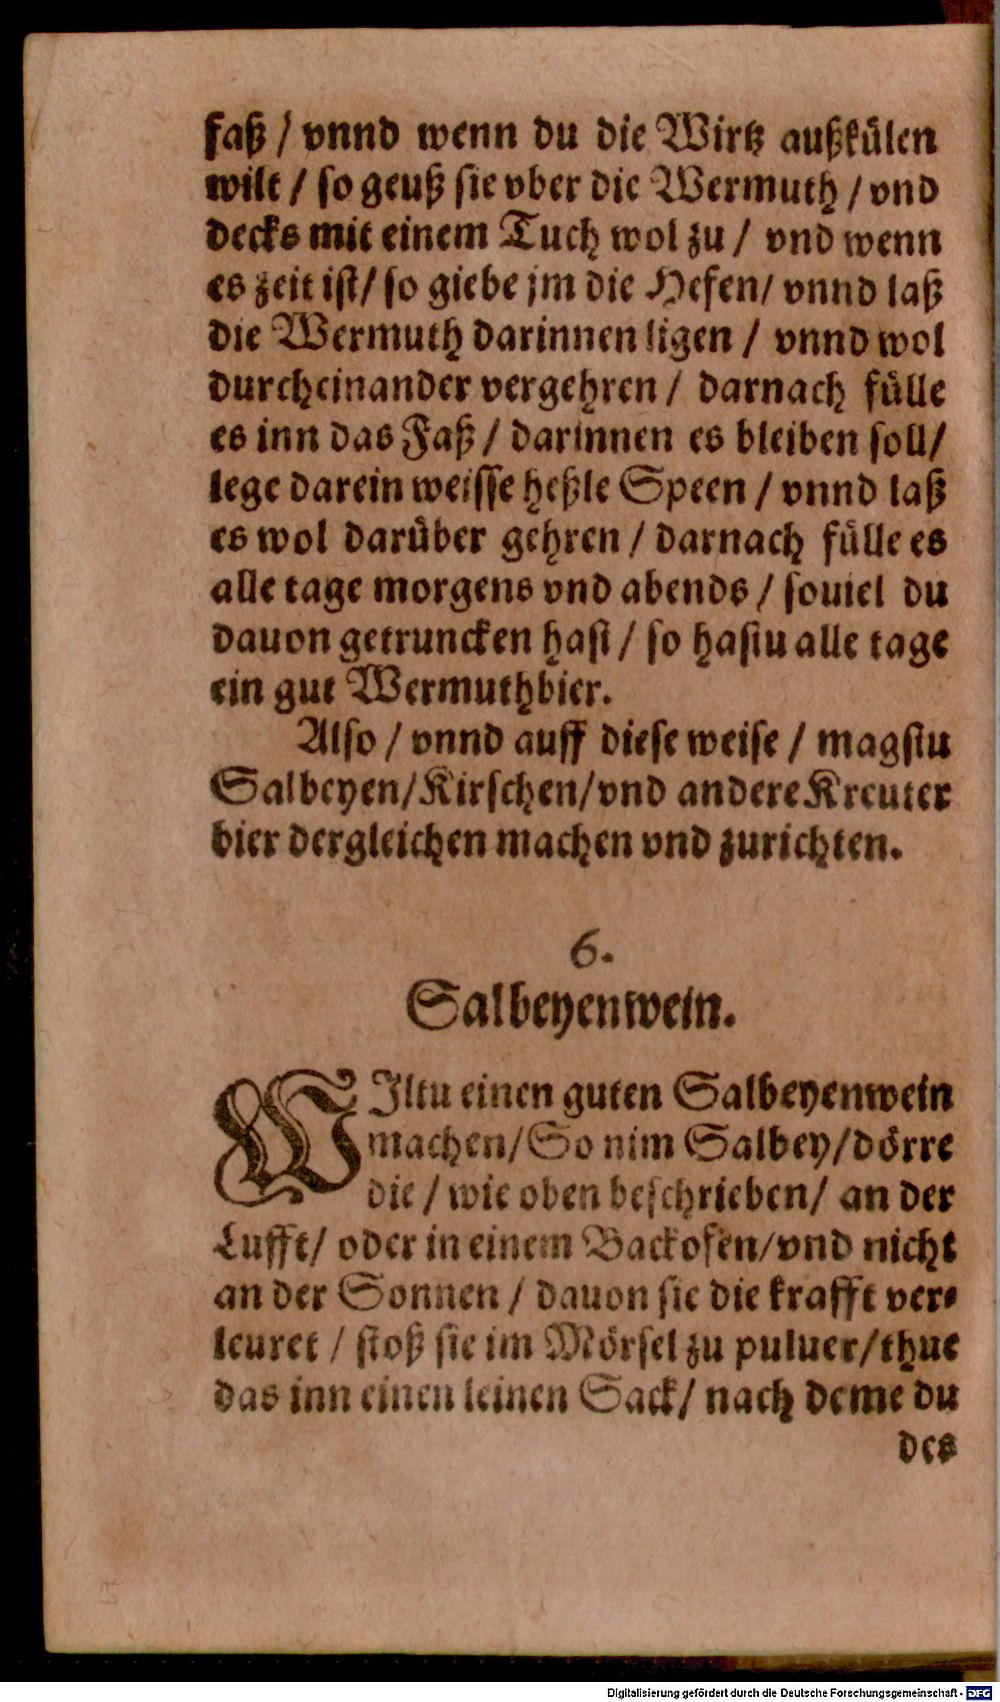 faß / vnnd wenn du die Wirtz außkülen
wilt / so geuß sie vber die Wermuth / vnd
decks mit einem Tuch wol zu / vnd wenn
es zeit ist / so giebe jm die Hefen / vnnd laß
die Wermuth darinnen ligen / vnnd wol
durcheinander vergehren / darnach fülle
es inn das Faß / darinnen es bleiben soll /
lege darein weisse heßle Speen / vnnd laß
es wol darüber gehren / darnach fülle es
alle tage morgens vnd abends / souiel du
dauon getruncken hast / so hastu alle tage
ein gut Wermuthbier.
Also / vnnd auff diese weise / magstu
Salbeyen / Kirschen / vnd andere Kreuter
bier dergleichen machen vnd zurichten.
6.
Salbeyenwein.
WIltu einen guten Salbeyenwein
machen / So nim Salbey / dörre
die / wie oben beschrieben / an der
Lufft / oder in einem Backofen / vnd nicht
an der Sonnen / dauon sie die krafft ver⸗
leuret / stoß sie im Mörsel zu puluer / thue
das inn einen leinen Sack / nach deme du
des
Digitalisierung gefördert durch die Deutsche Forschungsgemeinschaft - DFG